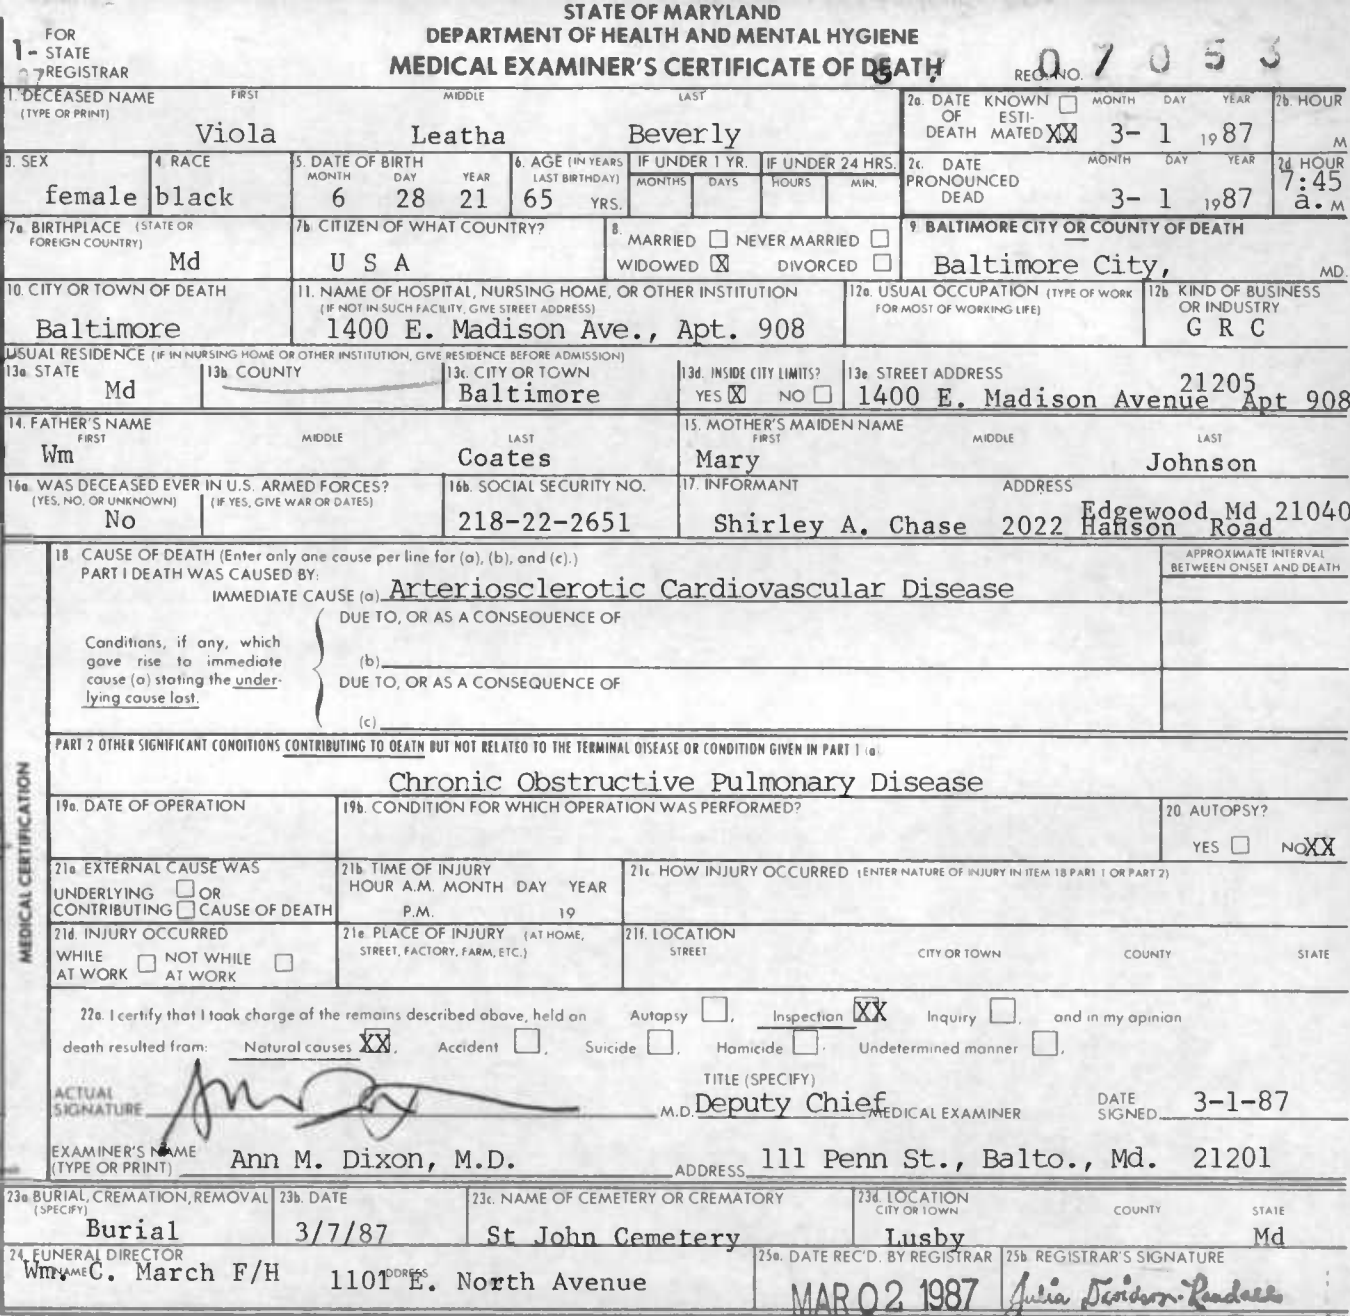 STATE OF MARYLAND
DEPARTMENT OF HEALTH AND MENTAL HYGIENE
MEDICAL EXAMINER'S CERTIFICATE OF DEATH
1- FOR STATE REGISTRAR
REG. NO. 07053
1. DECEASED NAME (TYPE OR PRINT) FIRST MIDDLE LAST
Viola Leatha Beverly
2a. DATE OF DEATH KNOWN ESTI-MATED XX MONTH DAY YEAR 3- 1 1987
2b. HOUR M
3. SEX female
4. RACE black
5. DATE OF BIRTH MONTH DAY YEAR 6 28 21
6. AGE (IN YEARS LAST BIRTHDAY) 65 YRS.
IF UNDER 1 YR. MONTHS DAYS
IF UNDER 24 HRS. HOURS MIN.
2c. DATE PRONOUNCED DEAD MONTH DAY YEAR 3- 1 1987
2d. HOUR 7:45 a. M
7a. BIRTHPLACE (STATE OR FOREIGN COUNTRY) Md
7b. CITIZEN OF WHAT COUNTRY? U S A
8. MARRIED NEVER MARRIED
WIDOWED X DIVORCED
9. BALTIMORE CITY OR COUNTY OF DEATH
Baltimore City, MD.
10. CITY OR TOWN OF DEATH
Baltimore
11. NAME OF HOSPITAL, NURSING HOME, OR OTHER INSTITUTION
(IF NOT IN SUCH FACILITY, GIVE STREET ADDRESS)
1400 E. Madison Ave., Apt. 908
12a. USUAL OCCUPATION (TYPE OF WORK FOR MOST OF WORKING LIFE)
12b. KIND OF BUSINESS OR INDUSTRY
G R C
USUAL RESIDENCE (IF IN NURSING HOME OR OTHER INSTITUTION, GIVE RESIDENCE BEFORE ADMISSION)
13a. STATE Md
13b. COUNTY
13c. CITY OR TOWN Baltimore
13d. INSIDE CITY LIMITS? YES X NO
13e. STREET ADDRESS 21205
1400 E. Madison Avenue Apt 908
14. FATHER'S NAME FIRST MIDDLE LAST
Wm Coates
15. MOTHER'S MAIDEN NAME FIRST MIDDLE LAST
Mary Johnson
16a. WAS DECEASED EVER IN U.S. ARMED FORCES?
(YES, NO, OR UNKNOWN) (IF YES, GIVE WAR OR DATES)
No
16b. SOCIAL SECURITY NO.
218-22-2651
17. INFORMANT ADDRESS
Edgewood Md 21040
Shirley A. Chase 2022 Hanson Road
MEDICAL CERTIFICATION
18 CAUSE OF DEATH (Enter only one cause per line for (a), (b), and (c).)
PART I DEATH WAS CAUSED BY:
IMMEDIATE CAUSE (a) Arteriosclerotic Cardiovascular Disease
APPROXIMATE INTERVAL BETWEEN ONSET AND DEATH
Conditions, if any, which gave rise to immediate cause (a) stating the under-lying cause last.
DUE TO, OR AS A CONSEQUENCE OF
(b)
DUE TO, OR AS A CONSEQUENCE OF
(c)
PART 2 OTHER SIGNIFICANT CONDITIONS CONTRIBUTING TO DEATH BUT NOT RELATED TO THE TERMINAL DISEASE OR CONDITION GIVEN IN PART 1 (a)
Chronic Obstructive Pulmonary Disease
19a. DATE OF OPERATION
19b. CONDITION FOR WHICH OPERATION WAS PERFORMED?
20 AUTOPSY?
YES NO XX
21a EXTERNAL CAUSE WAS
UNDERLYING OR
CONTRIBUTING CAUSE OF DEATH
21b TIME OF INJURY
HOUR A.M. MONTH DAY YEAR
P.M. 19
21c HOW INJURY OCCURRED (ENTER NATURE OF INJURY IN ITEM 18 PART 1 OR PART 2)
21d. INJURY OCCURRED
WHILE AT WORK NOT WHILE AT WORK
21e PLACE OF INJURY (AT HOME, STREET, FACTORY, FARM, ETC.)
21f. LOCATION
STREET CITY OR TOWN COUNTY STATE
22a. I certify that I took charge of the remains described above, held an Autopsy , Inspection XX Inquiry , and in my opinion
death resulted from: Natural causes XX, Accident , Suicide , Homicide . Undetermined manner ,
ACTUAL SIGNATURE
TITLE (SPECIFY)
M.D. Deputy Chief MEDICAL EXAMINER
DATE SIGNED 3-1-87
EXAMINER'S NAME (TYPE OR PRINT) Ann M. Dixon, M.D.
ADDRESS 111 Penn St., Balto., Md. 21201
23a BURIAL, CREMATION, REMOVAL (SPECIFY)
Burial
23b. DATE
3/7/87
23c. NAME OF CEMETERY OR CREMATORY
St John Cemetery
23d. LOCATION CITY OR TOWN COUNTY STATE
Lusby Md
24. FUNERAL DIRECTOR
NAME Wm. C. March F/H
ADDRESS 1101 E. North Avenue
25a. DATE REC'D. BY REGISTRAR
MAR 02 1987
25b. REGISTRAR'S SIGNATURE
Julia Davidson-Randall